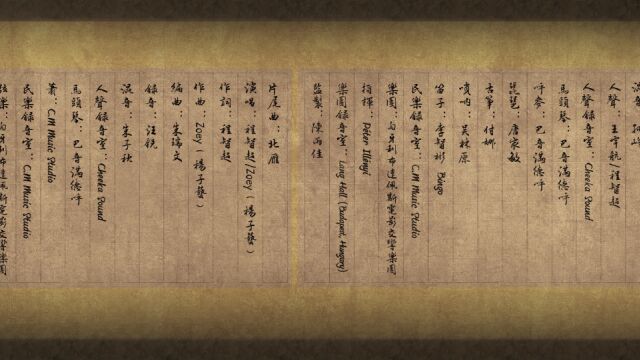 人聲：王宇航/程智超/
人聲錄音室：Cheeka Sound
馬頭琴：巴音滿德呼
呼麥：巴音滿德呼
琵琶：唐家敏
古箏：付娜
嗩吶：吳林原
笛子：李智彬 Bingo
民樂錄音室：C.M Music Studio
樂團：匈牙利布達佩斯電影交響樂團
指揮：Péter Illényi
樂團錄音室：Lang Hall (Budapest, Hungary)
監製：陳雨佳
片尾曲：北雁
演唱：程智超/Zoey（楊子藝）
作詞：程智超/
作曲：Zoey（楊子藝）
編曲：朱瑞文
錄音：汪銳
混音：朱子秋
人聲錄音室：Cheeka Sound
馬頭琴：巴音滿德呼
簫：C.M Music Studio
民樂錄音室：C.M Music Studio
弦樂：匈牙利布達佩斯電影交響樂團